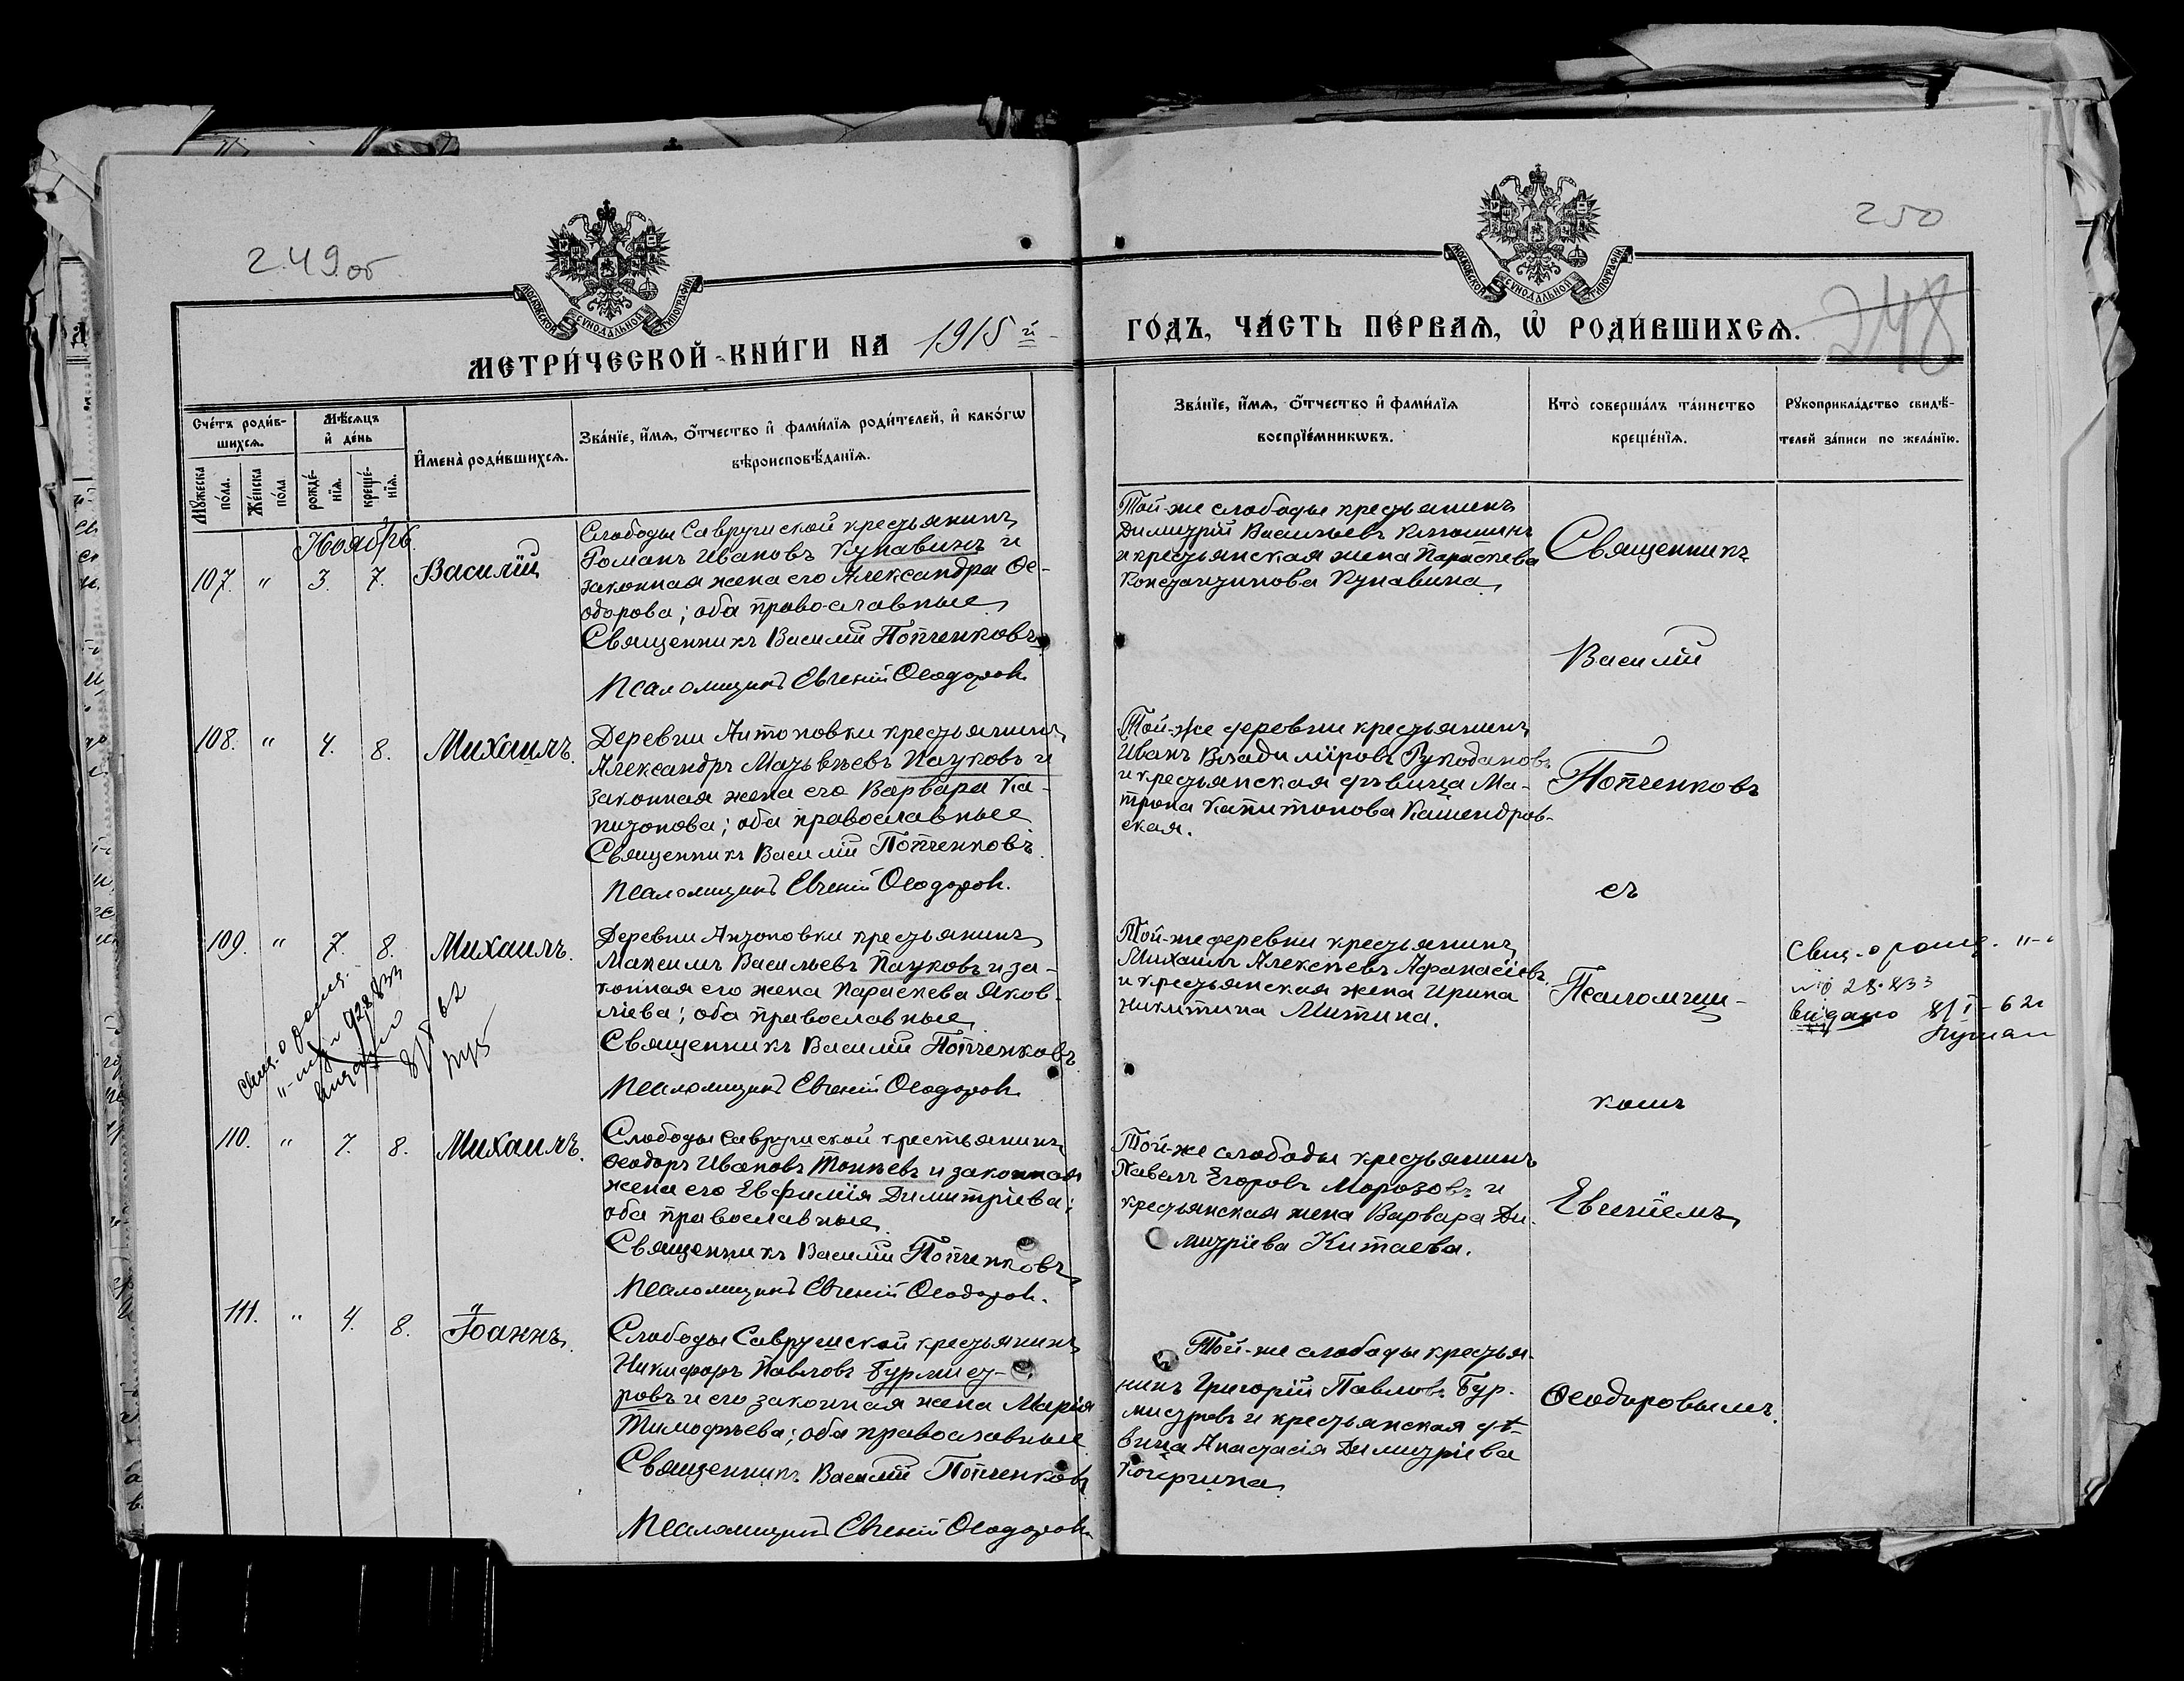 249 об
250
248
МОСКОВСКОЙ СѴНОДАЛЬНОЙ ТИПОГРАФІИ
МОСКОВСКОЙ СѴНОДАЛЬНОЙ ТИПОГРАФІИ
МЕТРИ́ЧЕСКОЙ КНИ́ГИ НА 1915 й
ГО́ДЪ, ЧА́СТЬ ПЕ́РВАЯ, Ѡ҆ РОДИ́ВШИХСЯ.
Сче́тъ роди́в-
шихся.
Мѣ́сяцъ
и҆ де́нь
Мꙋ́жеска
по́ла.
Же́нска
по́ла
рожде́-
нїѧ.
креще́-
нїѧ.
И҆мена̀ роди́вшихся.
Зва́нїе, и҆́мя, ѻ҆́тчество и҆ фами́лїя роди́телей, и҆ како́гѡ
вѣроисповѣ́данїя.
Зва́нїе, и҆́мя, ѻ҆́тчество и҆ фами́лїя
воспрїе́мникѡвъ.
Кто̀ соверша́лъ та́инство
креще́нїя.
Рꙋкоприкла́дство свидѣ́-
телей за́писи по жела́нїю.
Ноябрь.
107. " 3. 7. Василій
Слободы Саврушской крестьянинъ
Романъ Ивановъ Купавинъ и
законная жена его Александра Ѳе-
одорова; оба православные
Священникъ Василій Попченковъ
Псаломщикъ Евгеній Ѳеодоровъ
Той-же слободы крестьянинъ
Димитрій Васильевъ Клюшинъ
и крестьянская жена Параскева
Константинова Купавина
Священникъ
Василій
108. " 4. 8. Михаилъ.
Деревни Антоновки крестьянинъ
Александръ Матвѣевъ Пауковъ и
законная жена его Варвара Ка-
питонова; оба православные
Священникъ Василій Попченковъ
Псаломщикъ Евгеній Ѳеодоровъ.
Той-же деревни крестьянинъ
Иванъ Владиміровъ Рукодановъ
и крестьянская дѣвица Ма-
трона Капитонова Кашендров-
ская.
Попченковъ
съ
109. " 7. 8. Михаилъ.
Деревни Антоновки крестьянинъ
Максимъ Васильевъ Пауковъ и за-
конная его жена Параскева Яков-
лева; оба православные
Священникъ Василій Попченковъ
Псаломщикъ Евгеній Ѳеодоровъ
Той-же деревни крестьянинъ
Михаилъ Алексѣевъ Афанасіевъ
и крестьянская жена Ирина
Никитина Митина.
Псаломщи-
комъ
выдано
110. " 7. 8. Михаилъ.
Слободы Саврушской крестьянинъ
Ѳеодоръ Ивановъ Тонѣевъ и законная
жена его Евфимія Димитріева;
оба православные
Священникъ Василій Попченковъ
Псаломщикъ Евгеній Ѳеодоровъ.
Той-же слободы крестьянинъ
Павелъ Егоровъ Морозовъ и
крестьянская жена Варвара Ди-
митріева Китаева.
Евгеніемъ
111. " 4. 8. Іоаннъ.
Слободы Саврушской крестьянинъ
Никифоръ Павловъ Бурмист-
ровъ и его законная жена Марія
Тимофѣева; оба православные
Священникъ Василій Попченковъ
Псаломщикъ Евгеній Ѳеодоровъ
Той-же слободы крестья-
нинъ Григорій Павловъ Бур-
мистровъ и крестьянская дѣ-
вица Анастасія Димитріева
Ѳеодоровымъ.